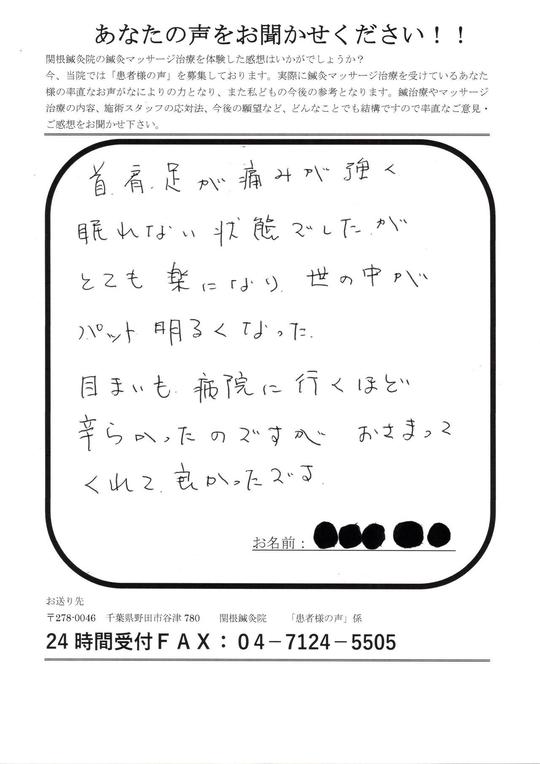 あなたの声をお聞かせください！！
関根鍼灸院の鍼灸マッサージ治療を体験した感想はいかがでしょうか？
今、当院では「患者様の声」を募集しております。実際に鍼灸マッサージ治療を受けているあなた
様の率直なお声がなによりの力となり、また私どもの今後の参考となります。鍼治療やマッサージ
治療の内容、施術スタッフの応対法、今後の願望など、どんなことでも結構ですので率直なご意見・
ご感想をお聞かせ下さい。
首.肩.足が痛みが強く
眠れない状態でしたが
とても楽になり.世の中が
パット明るくなった.
目まいも.病院に行くほど
辛らかったのですが おさまって
くれて.良かったです.
お名前：
お送り先
〒278-0046 千葉県野田市谷津780 関根鍼灸院 「患者様の声」係
24時間受付ＦＡＸ：０４－7124－5505